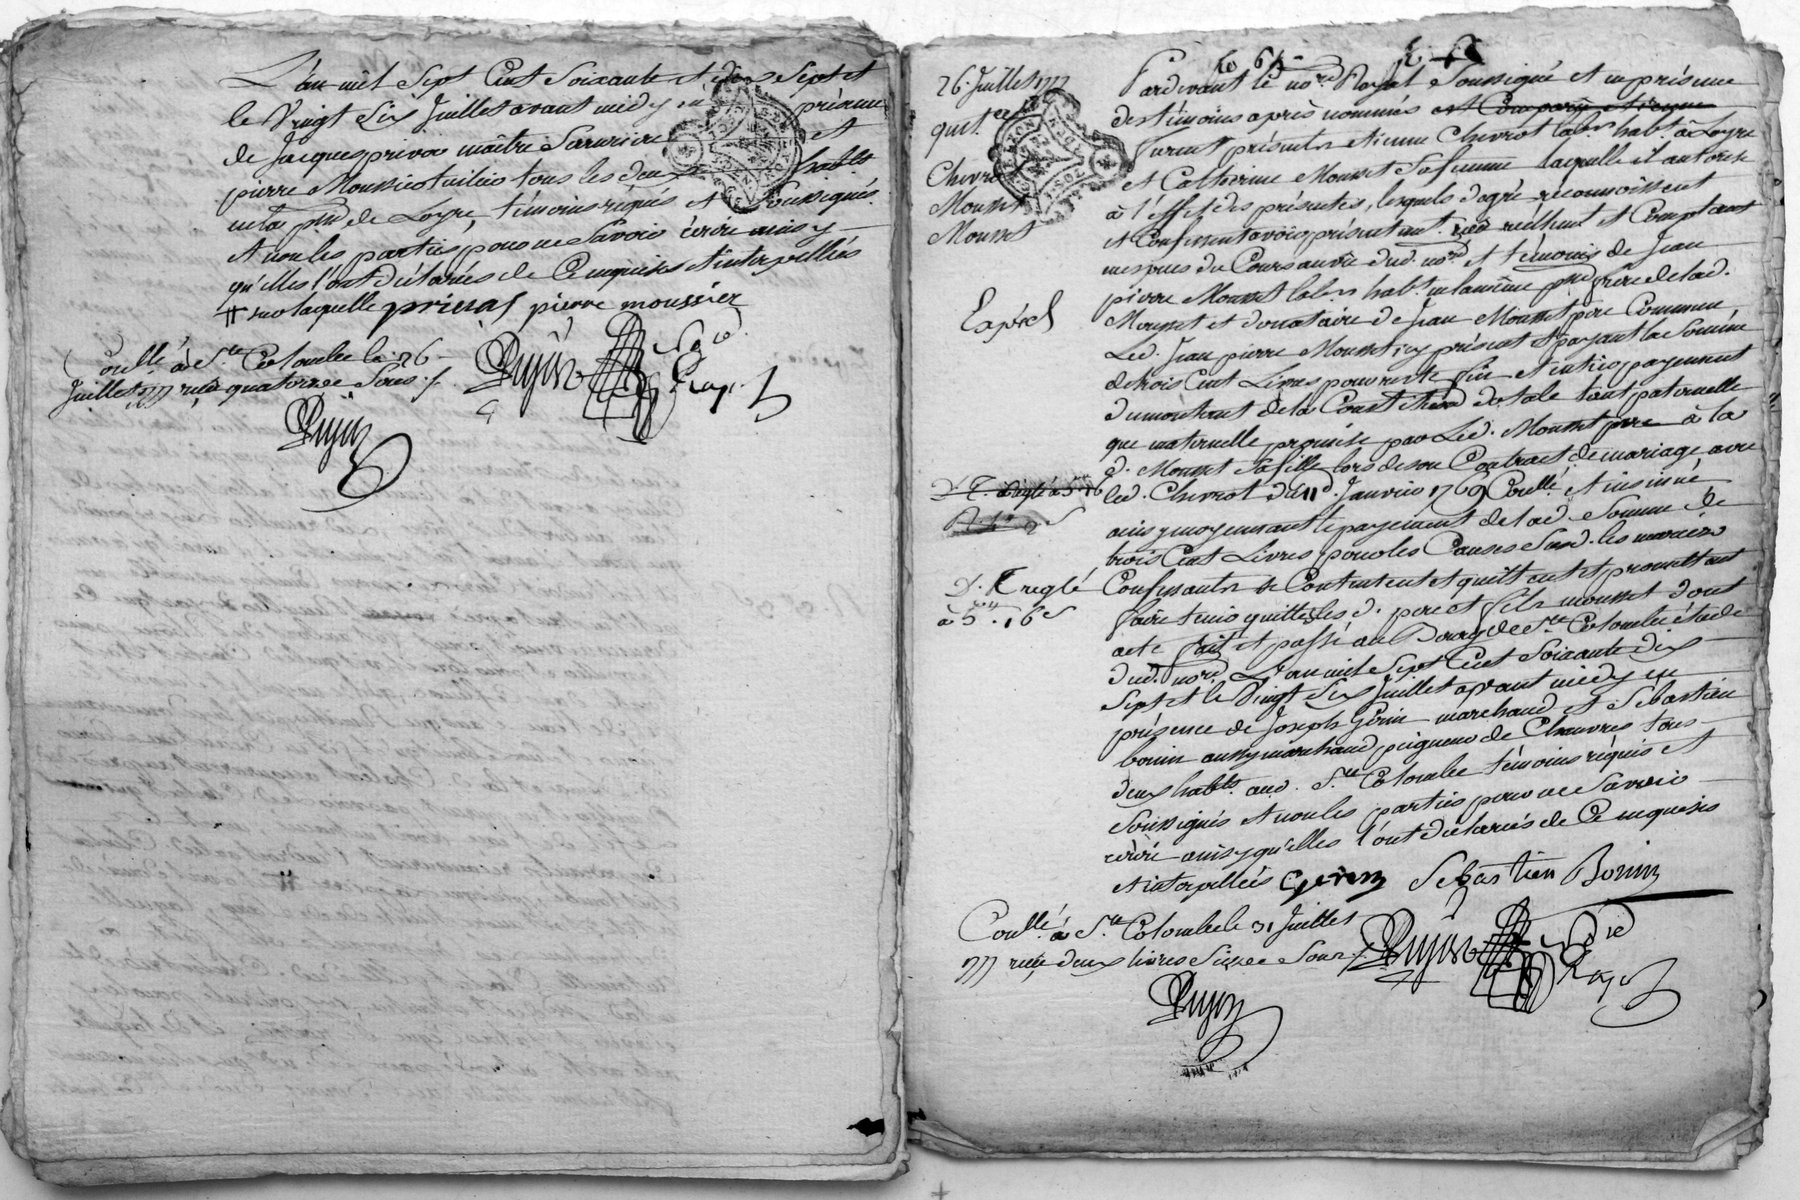 L'an mil Sept Cent Soixante et dix Sept et
le Vingt Six Juillet avant midy en présence
de Jacques privat maître Sarurier et
pierre Moussier tuilier tous les deux habts
en la pse de Loyre, témoins réquis et Soussignés
et non les parties pour ne Savoir écrire ainsy
qu'elles l'ont déclarées de Ce enquises et interpellées
sur laquelle privat pierre moussier
Conllé à Ste Colombe le 26
Juillet 1777 reçu quatorze Sous
Pujin
26 Juillet 1777
quitce
Chevrot
Mousset
Mousset
fo 64
Pardevant le nore Royal Soussigné et en présence
des témoins après nommés est Comparu etienne
furent présents etienne Chevrot labr habt à Loyre
et Catherine Mousset Sa femme laquelle il autorise
à l'effet des présentes, lesquels de gré reconnoissent
et Confessent avoir présentement reçu réellement et Comptant
en espèces du Cours au vû dud. nore et témoins de Jean
pierre Mousset labr habt en la même pse frère de lad.
Mousset et donataire de Jean Mousset père Commun
Led. Jean pierre Mousset icy présent et payant la Somme
de trois Cent Livres pour reste fin et entier payement
du montant de la Constitution dotale tant paternelle
que maternelle promise par Led. Mousset père à la
d. Mousset Sa fille lors de son Contract de mariage avec
led. Chevrot du 11 d. Janvier 1769 Conllé et insinué
ainsy moyennant le payement de lad. Somme de
trois Cent Livres pour les Causes Susd. les mariés
D. T. reglé
à 5 16s
Confessants se Contentent et quittent et promettent
faire tenir quittes les d. père et fils mousset dont
acte fait et passé au Bourg de Ste Colombe étude
dud. nore L'an mil Sept Cent Soixante dix
Sept et le Vingt Six Juillet avant midy en
présence de Joseph Gerin marchand et Sébastien
bonin aussy marchand peigneur de Chanvres tous
deux habts aud. Ste Colombe témoins réquis et
Soussignés et non les parties pour ne Savoir
écrire ainsy qu'elles l'ont déclarées de Ce enquises
et interpellées Gerin Sebastien Bonin
Conllé à Ste Colombe le 31 Juillet
1777 reçu deux livres Seize Sous
Pujin